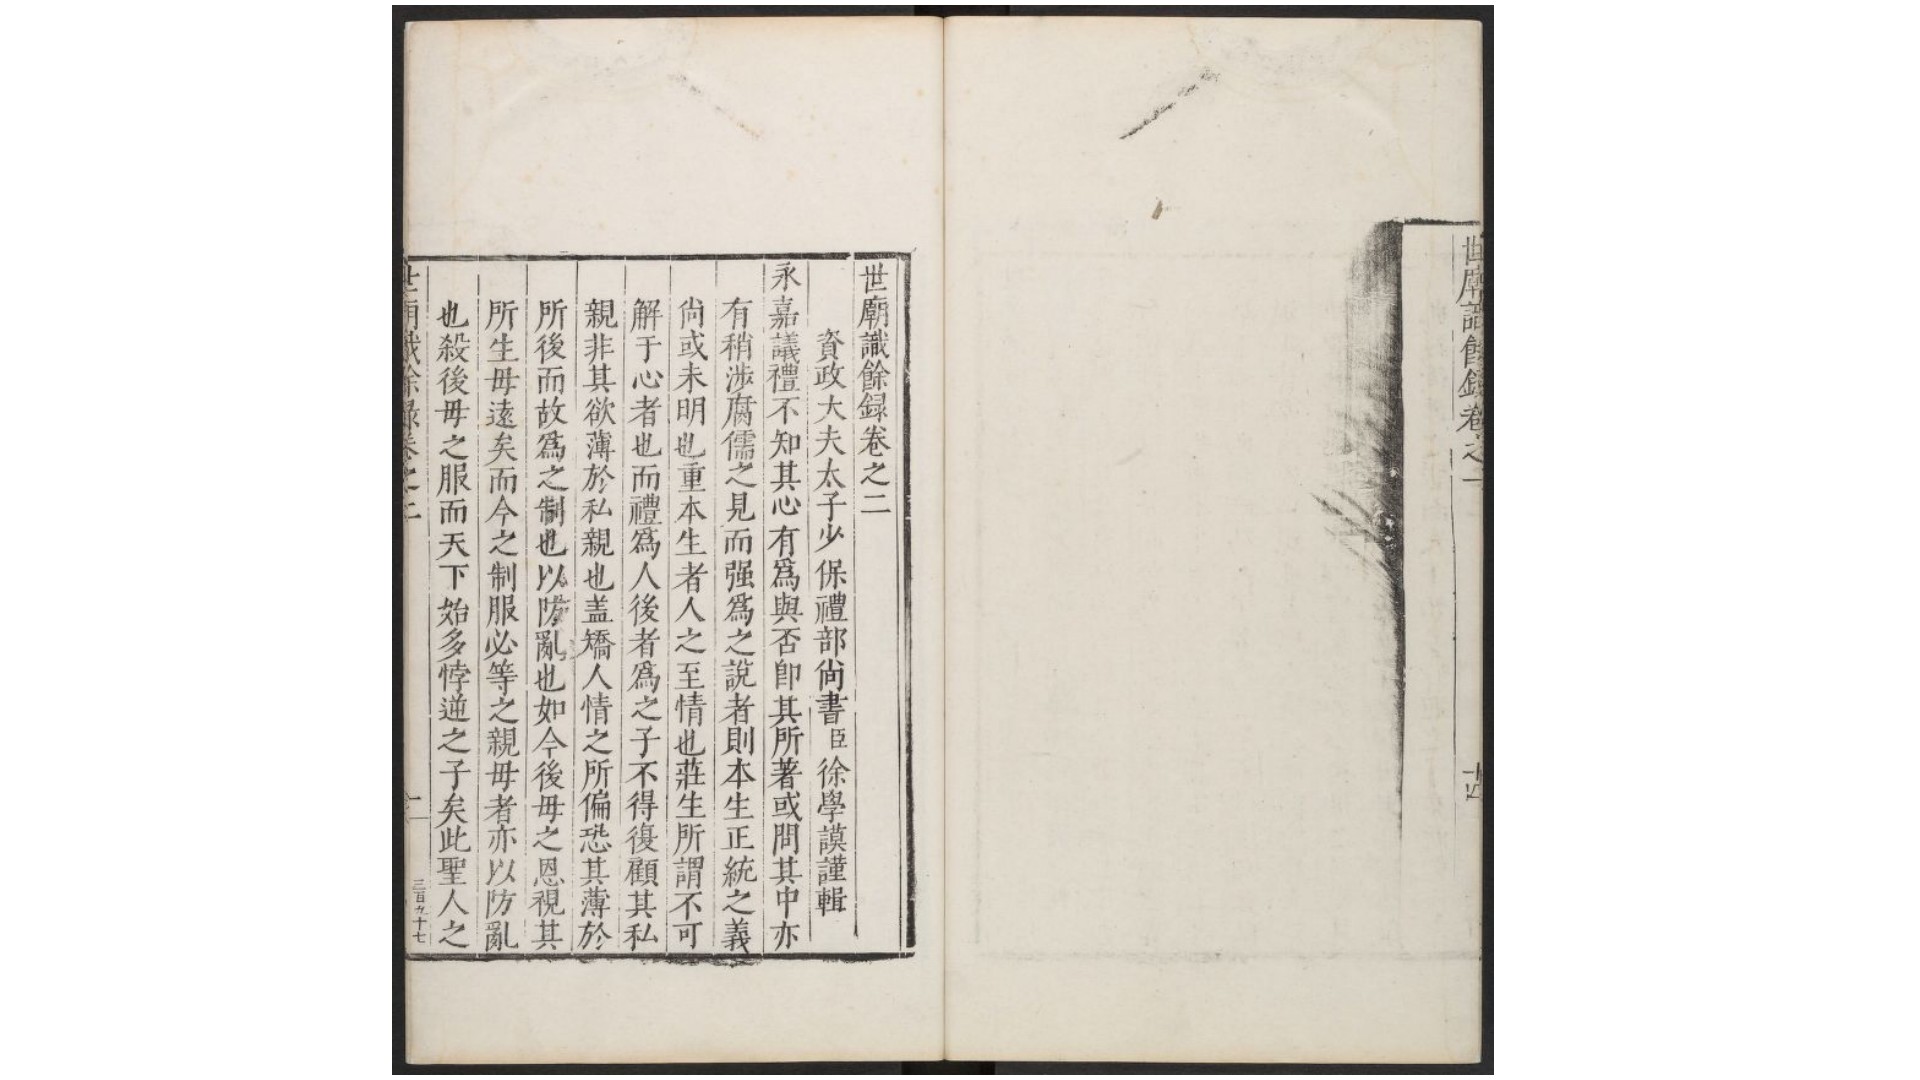 世廟識餘録卷之一
十四
世廟識餘録卷之二
資政大夫太子少保禮部尚書臣徐學謨謹輯
永嘉議禮不知其心有爲與否卽其所著或問其中亦
有稍涉腐儒之見而强爲之說者則本生正統之義
尚或未明也重本生者人之至情也莊生所謂不可
解于心者也而禮爲人後者爲之子不得復顧其私
親非其欲薄於私親也盖矯人情之所偏恐其薄於
所後而故爲之制也以防亂也如今後毋之恩視其
所生毋遠矣而今之制服必等之親毋者亦以防亂
也殺後毋之服而天下始多悖逆之子矣此聖人之
世廟識餘録卷之二
一
三百九十七